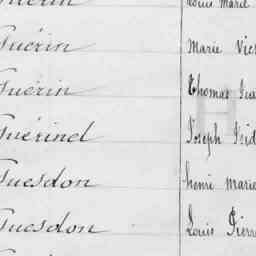 Guérin Louis Marie
Guérin Marie Vic
Guérin Thomas
Guérind Joseph Isid
Guesdon henri marie
Guesdon Louis Pierre